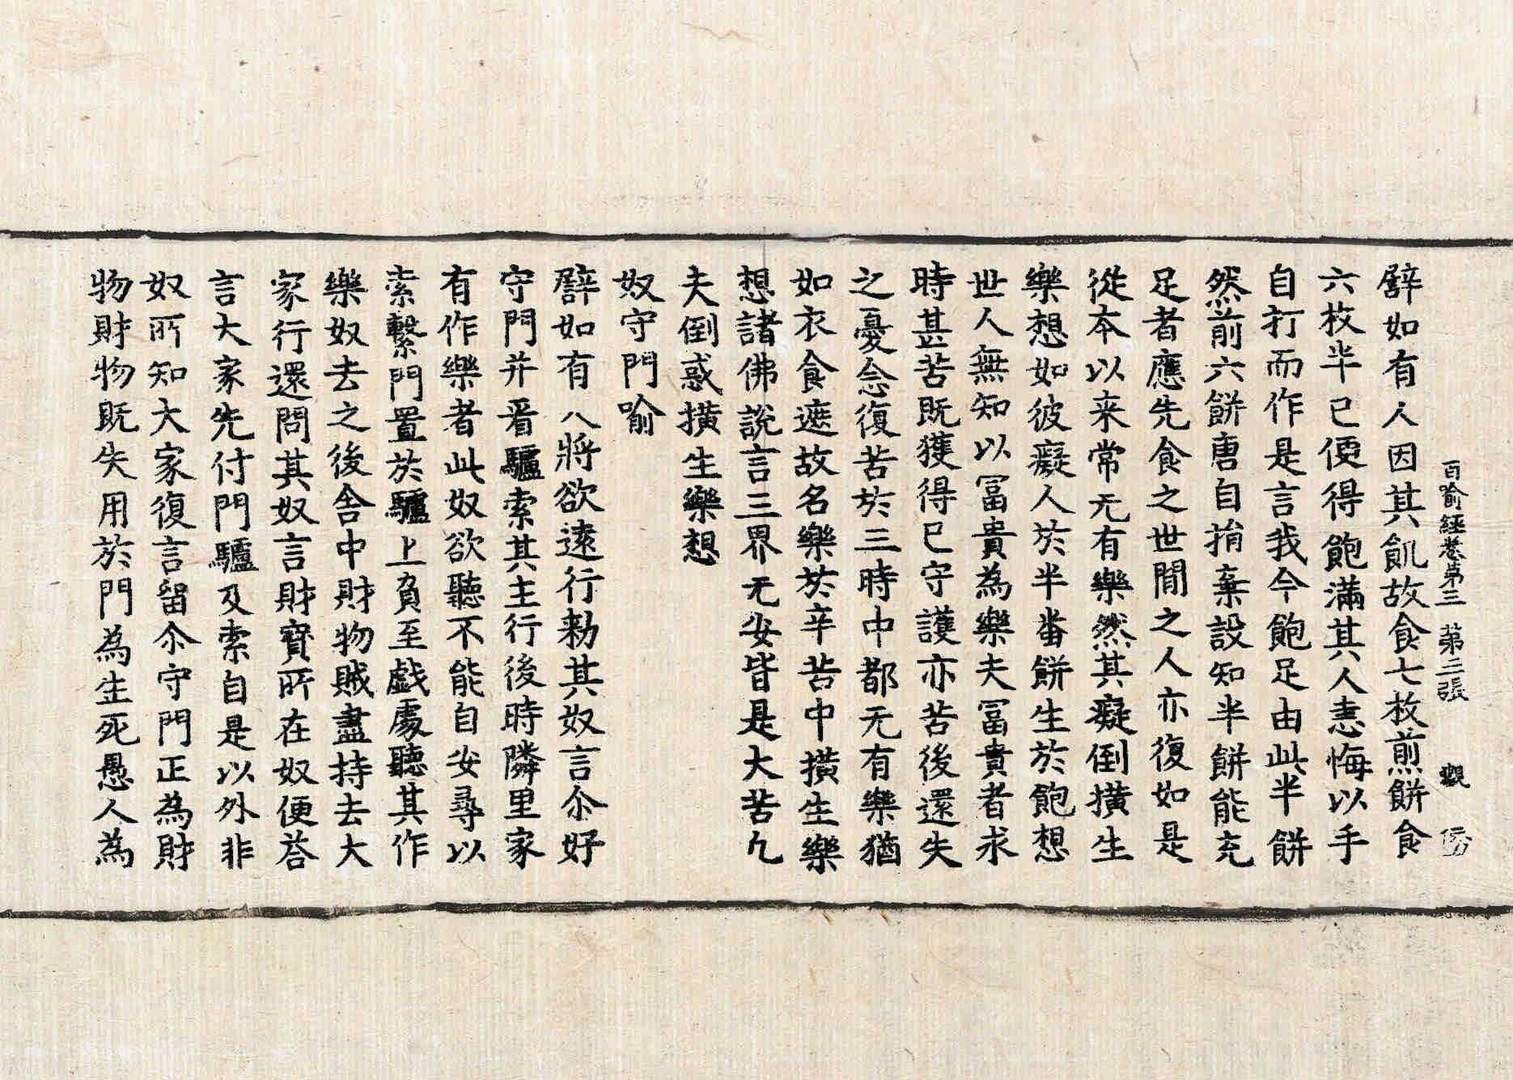 百喻經卷第三 第二張 觀
譬如有人因其飢故食七枚煎餅食
六枚半已便得飽滿其人恚悔以手
自打而作是言我今飽足由此半餅
然前六餅唐自捐棄設知半餅能充
足者應先食之世間之人亦復如是
從本以来常无有樂然其癡倒撗生
樂想如彼癡人於半番餅生於飽想
世人無知以冨貴為樂夫冨貴者求
時甚苦既獲得已守護亦苦後還失
之憂念復苦於三時中都无有樂猶
如衣食遮故名樂於辛苦中撗生樂
想諸佛說言三界无安皆是大苦凢
夫倒惑撗生樂想
奴守門喻
譬如有人將欲遠行勑其奴言尒好
守門并㸔驢索其主行後時隣里家
有作樂者此奴欲聽不能自安尋以
索繫門置於驢上負至戯處聽其作
樂奴去之後舍中財物賊盡持去大
家行還問其奴言財寶所在奴便荅
言大家先付門驢及索自是以外非
奴所知大家復言留尒守門正為財
物財物既失用於門為生死愚人為